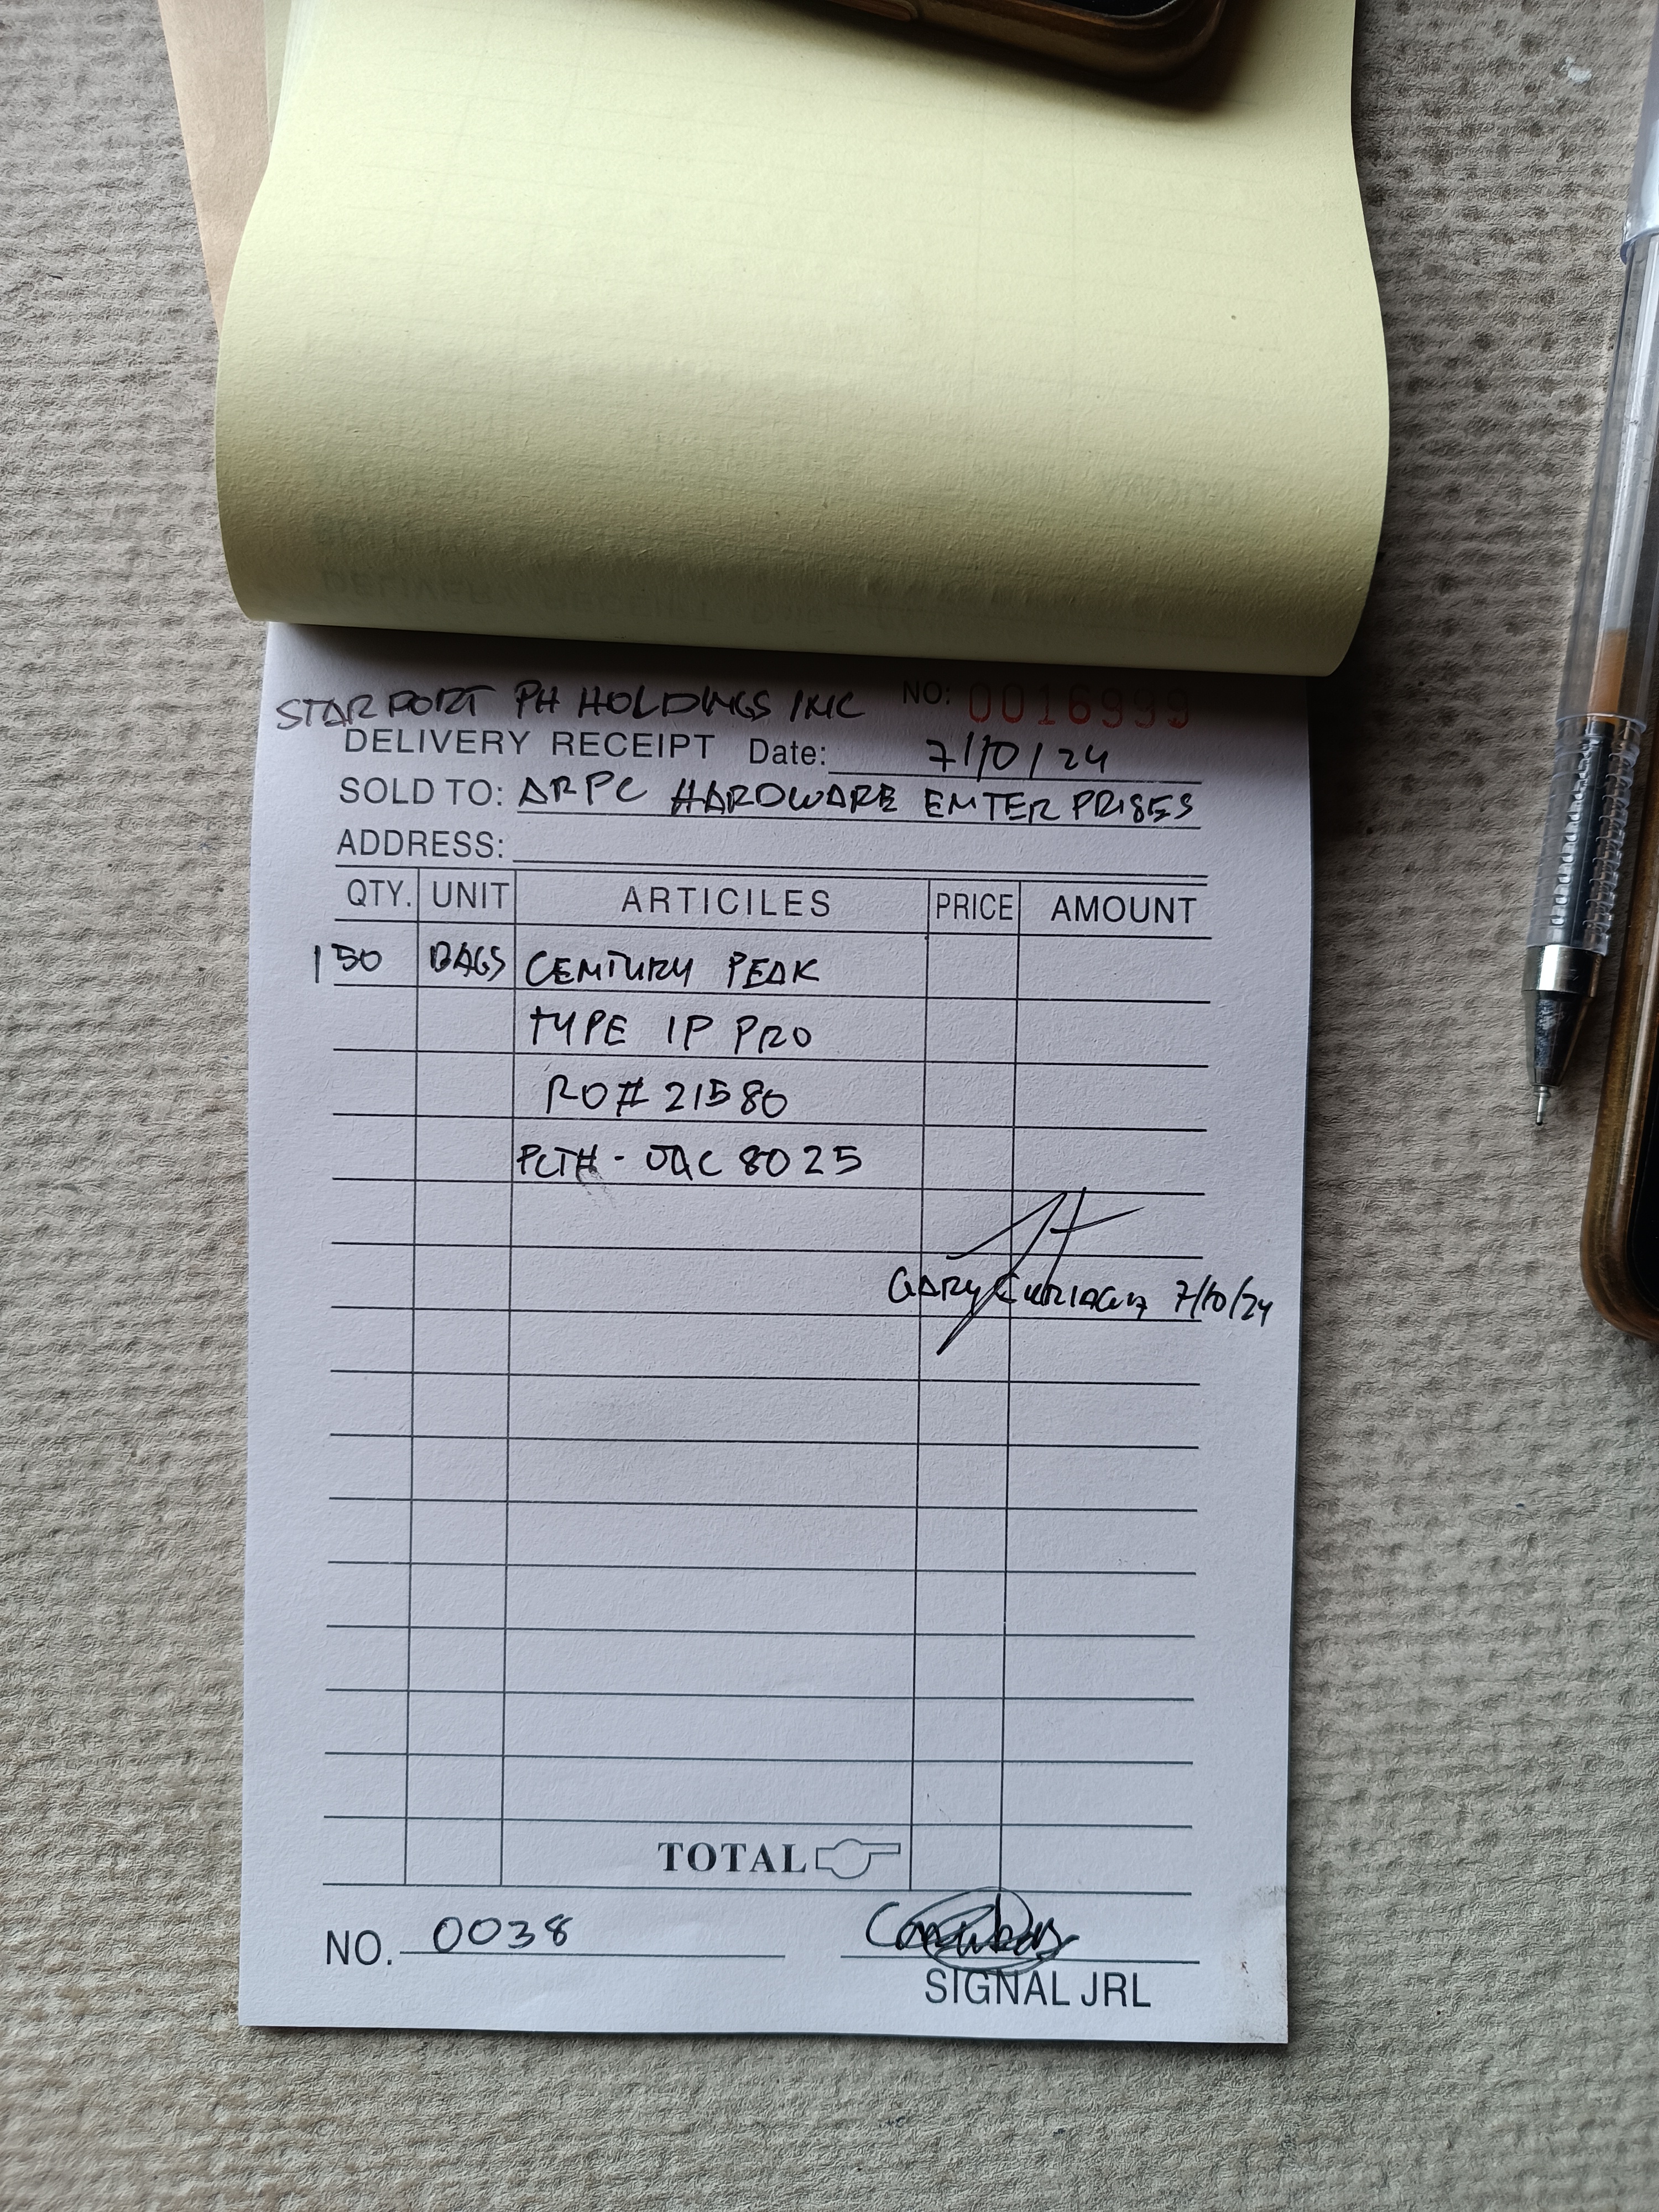 STARPORT PH HOLDINGS INC NO: 0016999
DELIVERY RECEIPT Date: 7/10/24
SOLD TO: ARPC HARDWARE ENTERPRISES
ADDRESS:
QTY. UNIT ARTICILES PRICE AMOUNT
150 BAGS CENTURY PEAK
TYPE 1P PRO
RO# 21580
PLT# - UAC 8025
GARY 7/10/24
TOTAL
NO. 0038
SIGNAL JRL